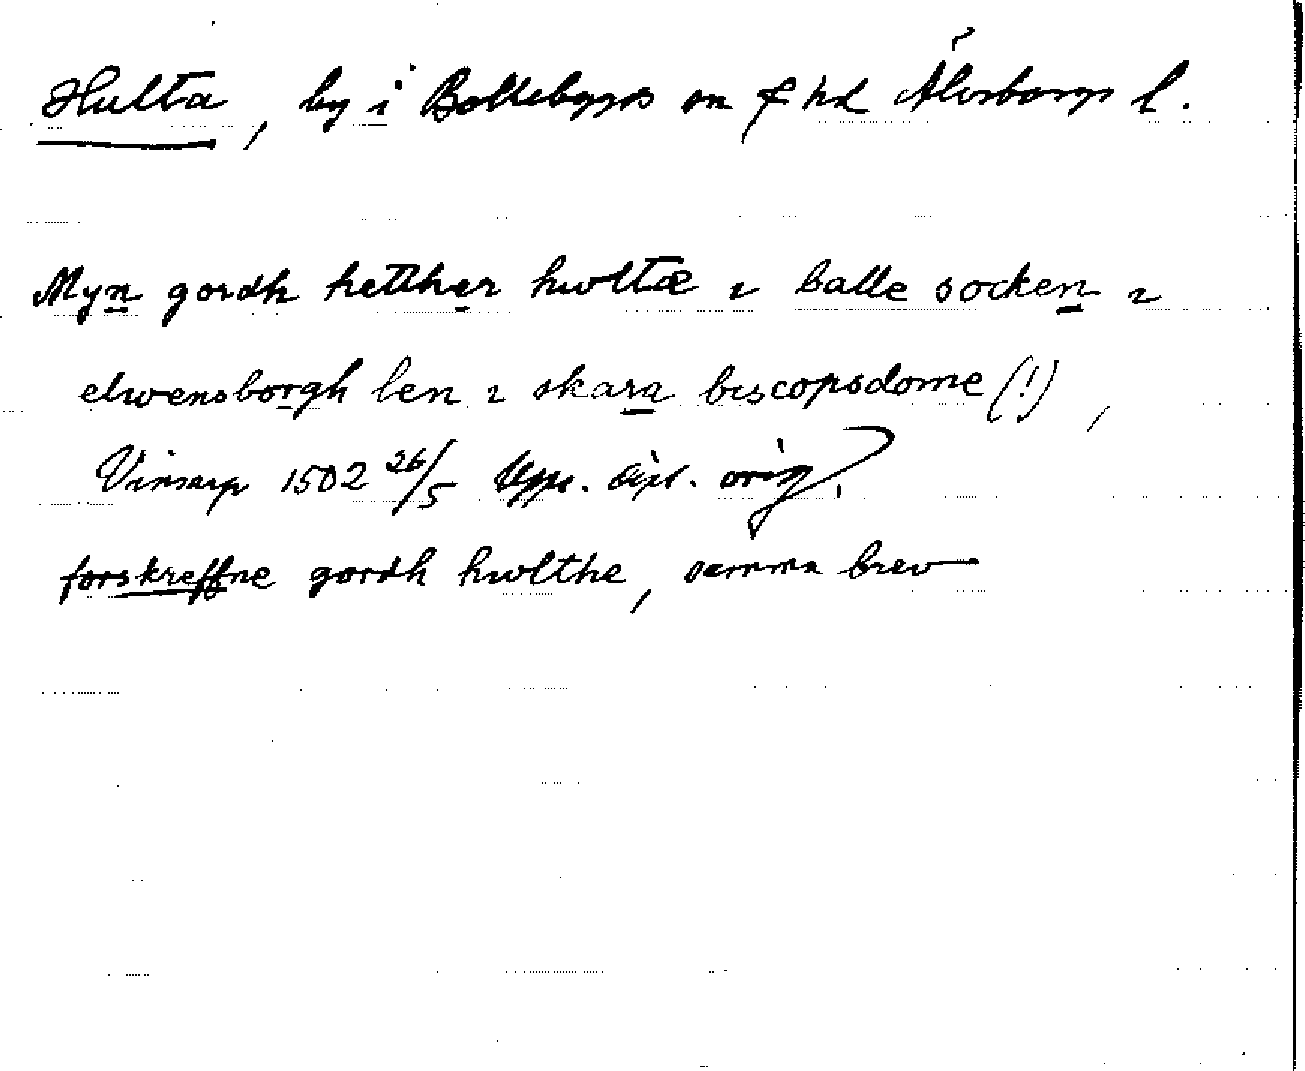 Hulta, by i Bollebygds sn o hd Älvsborgs l.
Myn gordh hetther hwltæ ı balle socken ı
elwensborgh len ı skara biscopsdome (!),
Vinsarp 1502 26/5 Upps. dipl. orig.
forskreffne gordh hwlthe, samma brev